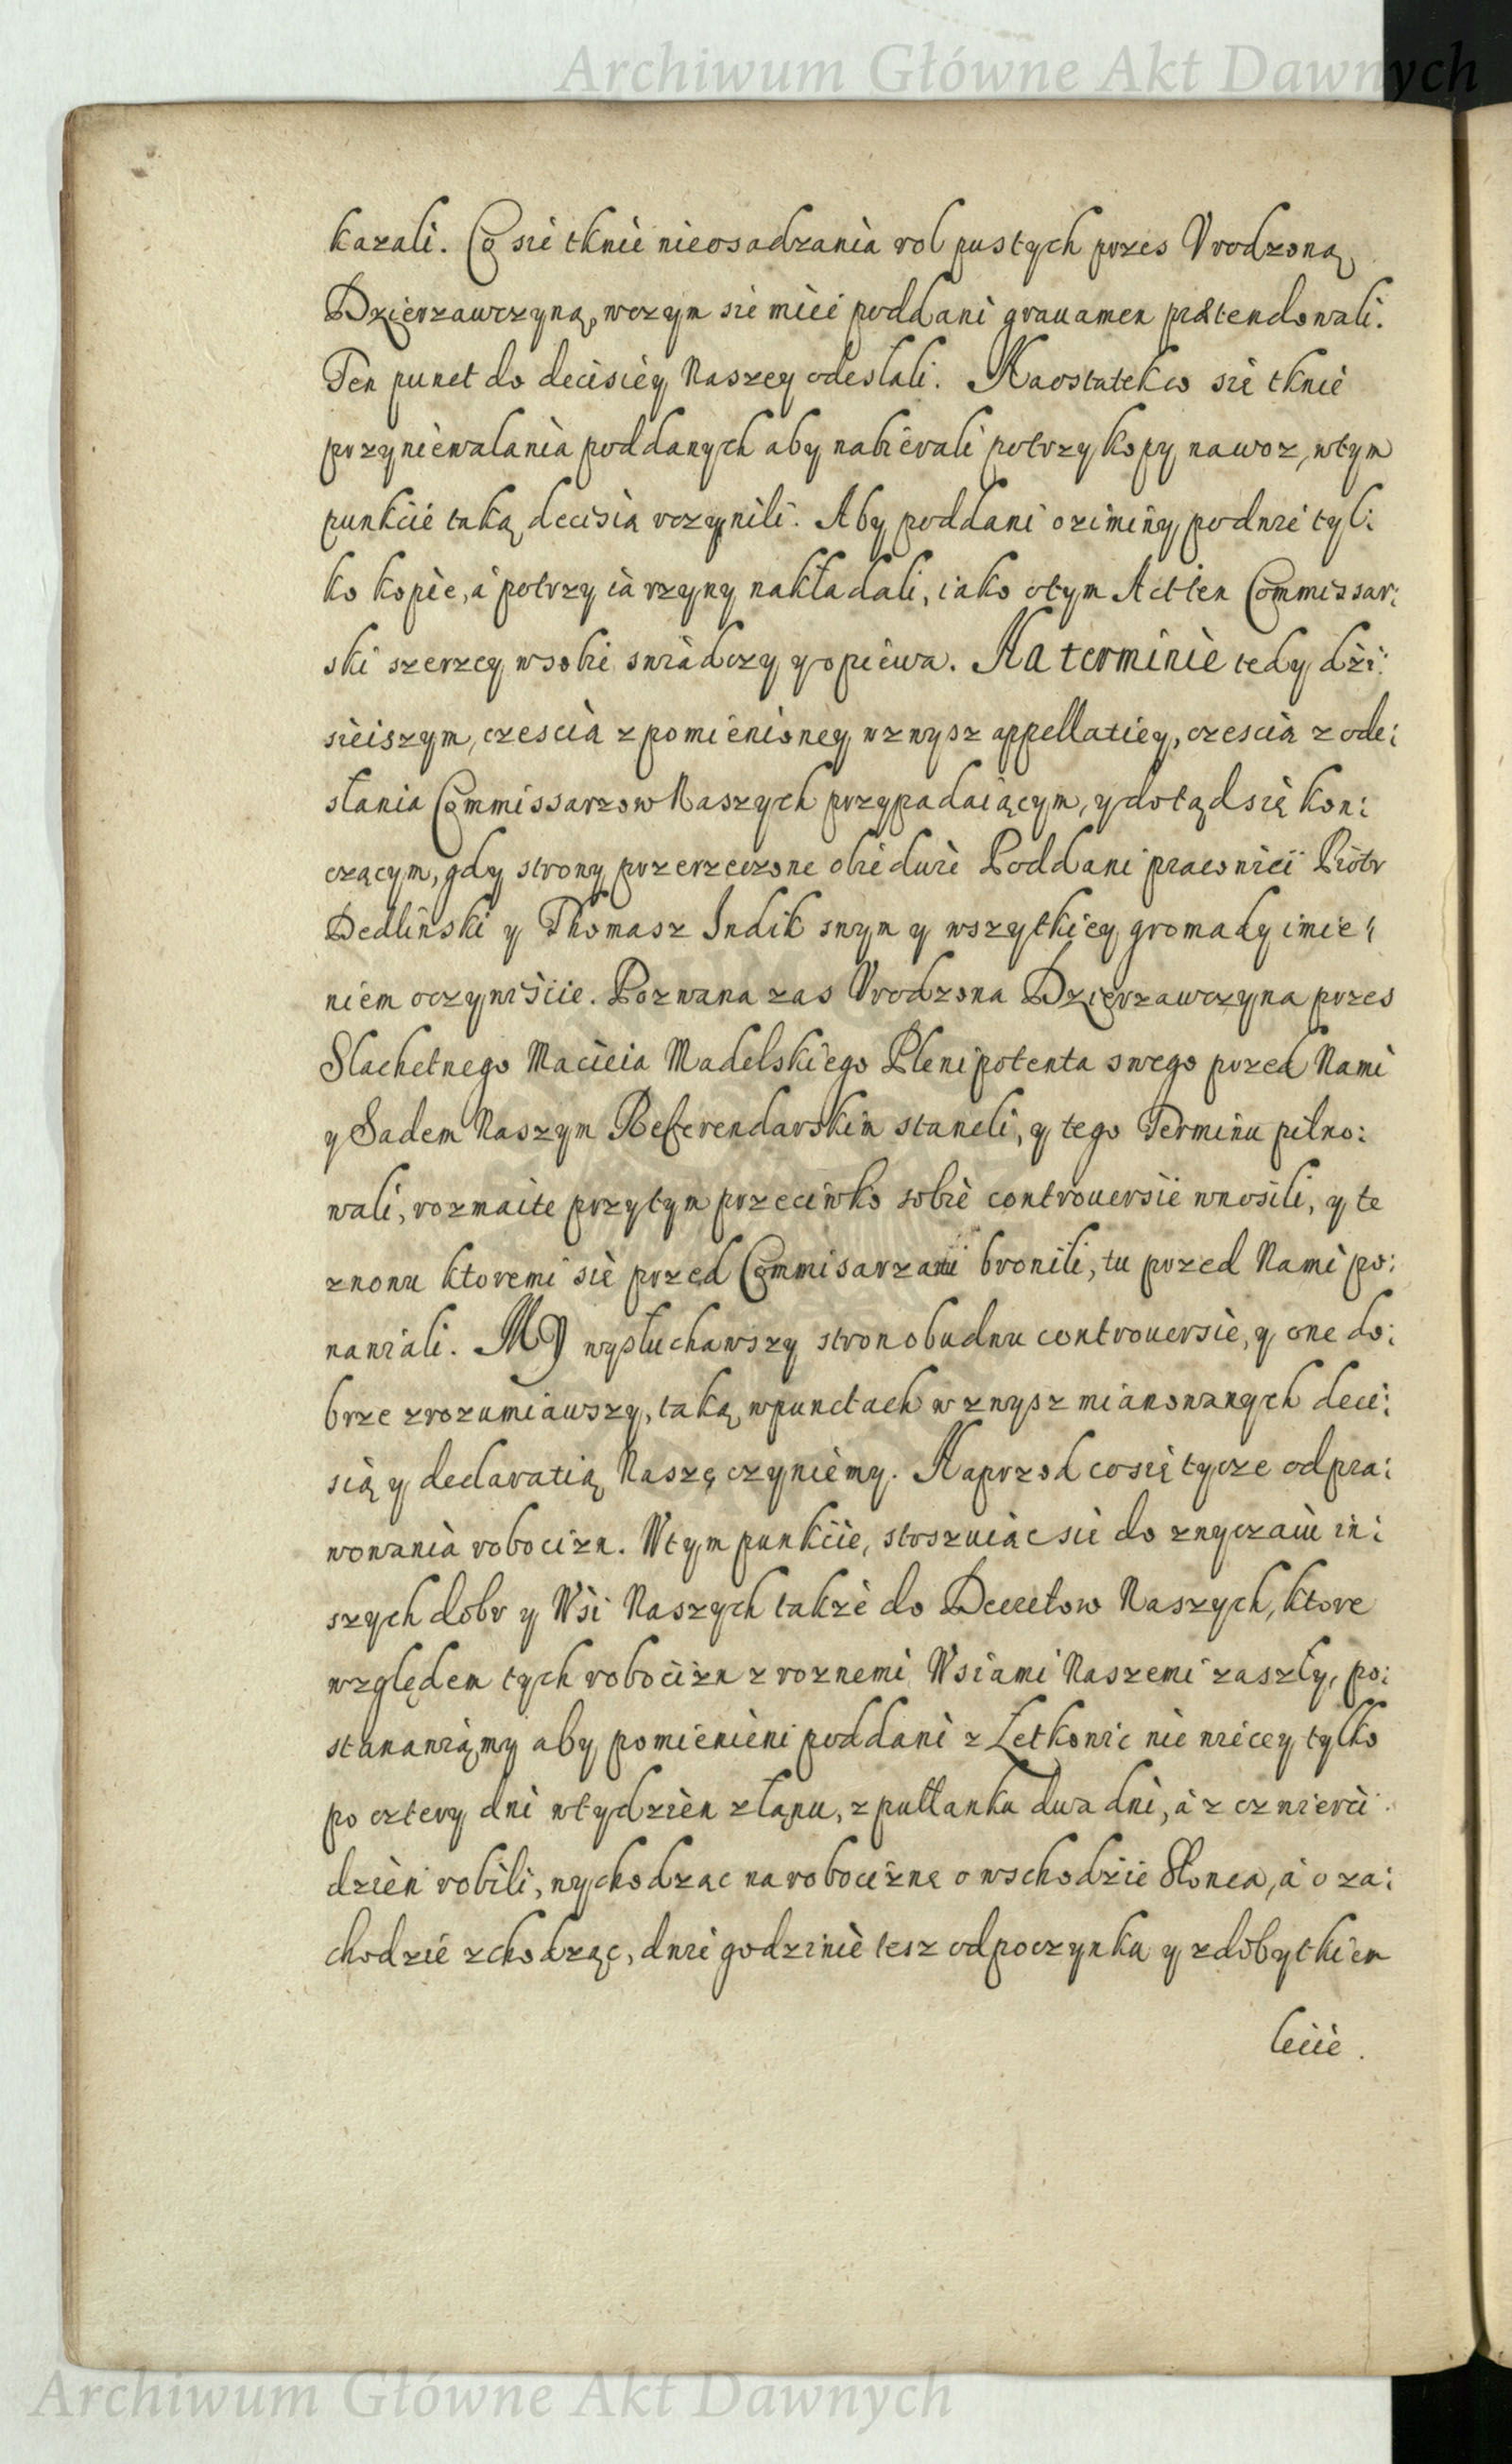 Archiwum Główne Akt Dawnych
kazali. Co sie tknie nieosadzania rol pustych przes Vrodzoną
Dzierzawczyną, wczym sie mieć poddani grauamen prætendowali.
Ten punct do decisiey Naszey odesłali. Naostatek co sie tknie
przyniewalania poddanych aby nabierali potrzy kopy nawoz, wtym
punkcie taką decisią vczynili. Aby poddani oziminy podwie tyl:
ko kopie, á potrzy iárzyny nakładali, iako otym Act ten Commissar:
ski szerzey wsobie swiádczy y opiewa. Na terminie tedy dzi:
sieiszym, czescią zpomienioney wzwysz appellatiey, czescią zode:
słania Commissarzow Naszych przypadaiącym, y dotąd się kon:
czącym, gdy strony przerzeczone obiedwie Poddani pracowici Piotr
Dedlinski y Thomasz Indik swym y wszytkiey gromady imie:
niem oczywiscie. Pozwana zas Vrodzona Dzierzawczyna przes
Slachetnego Macieia Madelskiego Plenipotenta swego przed Nami
y Sadem Naszym Referendarskim staneli, y tego Terminu pilno:
wali, rozmaite przytym przeciwko sobie controuersie wnosili, y te
znowu ktoremi sie przed Commisarzami bronili, tu przed Nami po:
nawiali. MY wysłuchawszy stron obudwu controuersie, y one do:
brze zrozumiawszy, taką wpunctach wzwysz mianowanych deci:
sią y declaratią Naszę czyniemy. Naprzod co się tycze odpra:
wowania robocizn. Wtym punkcie, stoszuiąc sie do zwyczaiu in:
szych dobr y Wsi Naszych także do Decretow Naszych, ktore
względem tych robocizn z roznemi Wsiami Naszemi zaszły, po:
stanawiąmy aby pomienieni poddani z Letkowic nie wiecey tylko
po cztery dni wtydzien złanu, z pułłanku dwa dni, á z czwierci
dzien robili, wychodząc na robociznę o wschodzie Słonca, á o za:
chodzie zchodząc, dwie godzinie tesz odpoczynku y zdobytkiem
lecie.
Archiwum Główne Akt Dawnych